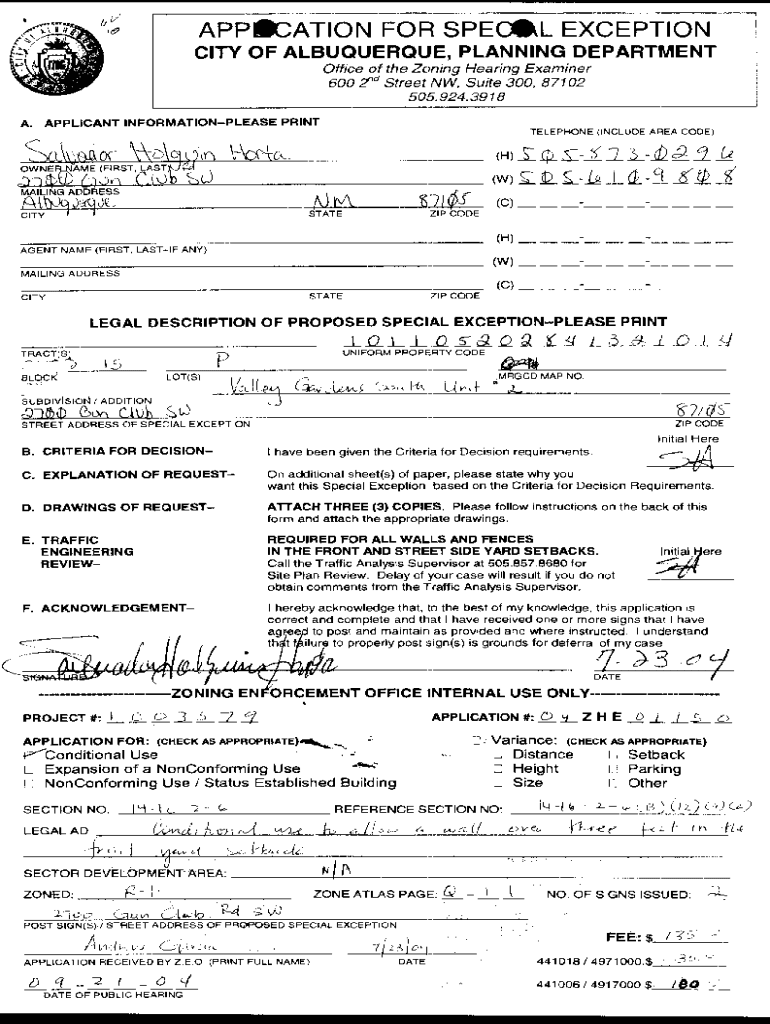 APPLICATION FOR SPECIAL EXCEPTION
CITY OF ALBUQUERQUE, PLANNING DEPARTMENT
Office of the Zoning Hearing Examiner
600 2nd Street NW, Suite 300, 87102
505.924.3918
A. APPLICANT INFORMATION–PLEASE PRINT
TELEPHONE (INCLUDE AREA CODE)
Salvador Holguin Horta (H) 505-873-0296
OWNER NAME (FIRST, LAST)
2700 Gun Club SW (W) 505-610-9808
MAILING ADDRESS
Albuquerque NM 87105 (C) - -
CITY STATE ZIP CODE
(H) - -
AGENT NAME (FIRST, LAST–IF ANY)
(W) - -
MAILING ADDRESS
(C) - -
CITY STATE ZIP CODE
LEGAL DESCRIPTION OF PROPOSED SPECIAL EXCEPTION–PLEASE PRINT
101105202841321014
TRACT(S) UNIFORM PROPERTY CODE
15 P
BLOCK LOT(S) MRGCD MAP NO.
Valley Gardens South Unit # 2
SUBDIVISION / ADDITION
2700 Gun Club SW 87105
STREET ADDRESS OF SPECIAL EXCEPTION ZIP CODE
Initial Here
B. CRITERIA FOR DECISION– I have been given the Criteria for Decision requirements. SH
C. EXPLANATION OF REQUEST– On additional sheet(s) of paper, please state why you
want this Special Exception based on the Criteria for Decision Requirements.
D. DRAWINGS OF REQUEST– ATTACH THREE (3) COPIES. Please follow instructions on the back of this
form and attach the appropriate drawings.
E. TRAFFIC REQUIRED FOR ALL WALLS AND FENCES
ENGINEERING IN THE FRONT AND STREET SIDE YARD SETBACKS. Initial Here
REVIEW– Call the Traffic Analysis Supervisor at 505.857.8680 for SH
Site Plan Review. Delay of your case will result if you do not
obtain comments from the Traffic Analysis Supervisor.
F. ACKNOWLEDGEMENT– I hereby acknowledge that, to the best of my knowledge, this application is
correct and complete and that I have received one or more signs that I have
agreed to post and maintain as provided and where instructed. I understand
that failure to properly post sign(s) is grounds for deferral of my case
Salvador Holguin Horta 7-23-04
SIGNATURE DATE
ZONING ENFORCEMENT OFFICE INTERNAL USE ONLY
PROJECT #: 1003579 APPLICATION #: 04 ZHE 01150
APPLICATION FOR: (CHECK AS APPROPRIATE) Variance: (CHECK AS APPROPRIATE)
Conditional Use Distance Setback
Expansion of a NonConforming Use Height Parking
NonConforming Use / Status Established Building Size Other
SECTION NO. 14-16 2-6 REFERENCE SECTION NO: 14-16-2-6(B)(12)
LEGAL AD Conditional use to allow a wall over three feet in the
front yard setback
SECTOR DEVELOPMENT AREA: N/A
ZONED: R-1 ZONE ATLAS PAGE: Q-11 NO. OF SIGNS ISSUED: 2
2700 Gun Club Rd SW
POST SIGN(S) / STREET ADDRESS OF PROPOSED SPECIAL EXCEPTION
FEE: $ 135
7/23/04
APPLICATION RECEIVED BY Z.E.O. (PRINT FULL NAME) DATE 441018 / 4971000.$
09-21-04 441006 / 4917000.$ 100
DATE OF PUBLIC HEARING